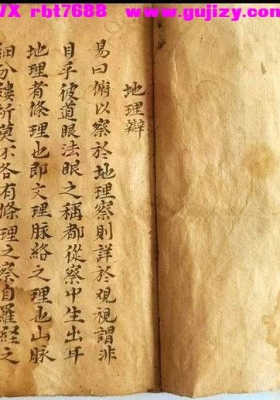 VX rbt7688 www.gujizy.com
地理辯
易曰俯以察於地理察則詳於觀視謂非
目乎彼道眼法眼之稱都從察中生出耳
地理者條理也即文理脉絡之理也山脉
細分縷析莫不各有條理之察自羅經之